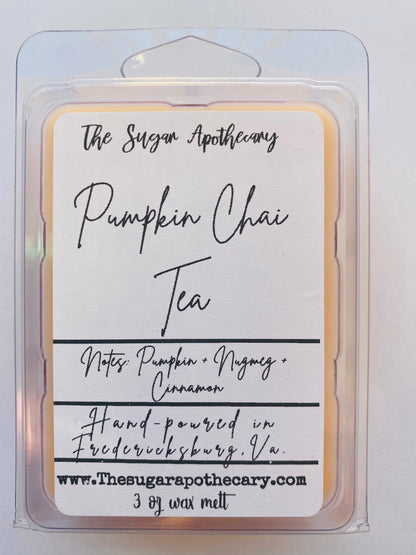 The Sugar Apothecary
Pumpkin Chai
Tea
Notes: Pumpkin + Nugmeg +
Cinnamon
Hand-poured in
Fredericksburg, Va.
www.Thesugarapothecary.com
3 oz wax melt